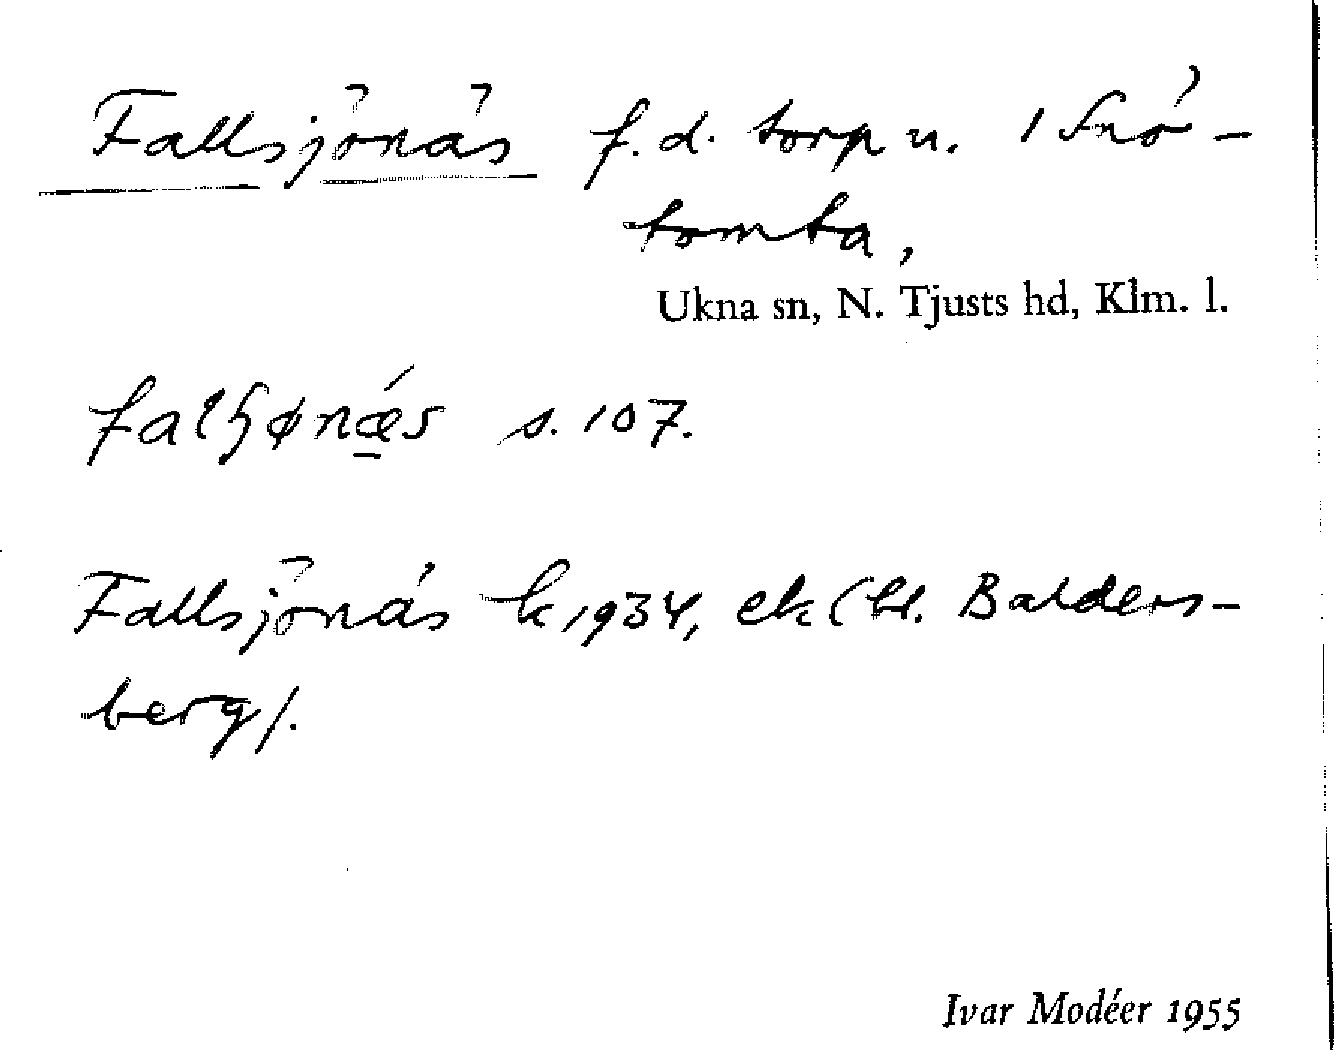 Fallsjönäs f.d. torp u. 1 Snö-
tomta,
Ukna sn, N. Tjusts hd, Klm. l.
falʃønǽ̠s s. 107.
Fallsjönäs k 1934, ek (bl. Balders-
berg).
Ivar Modéer 1955